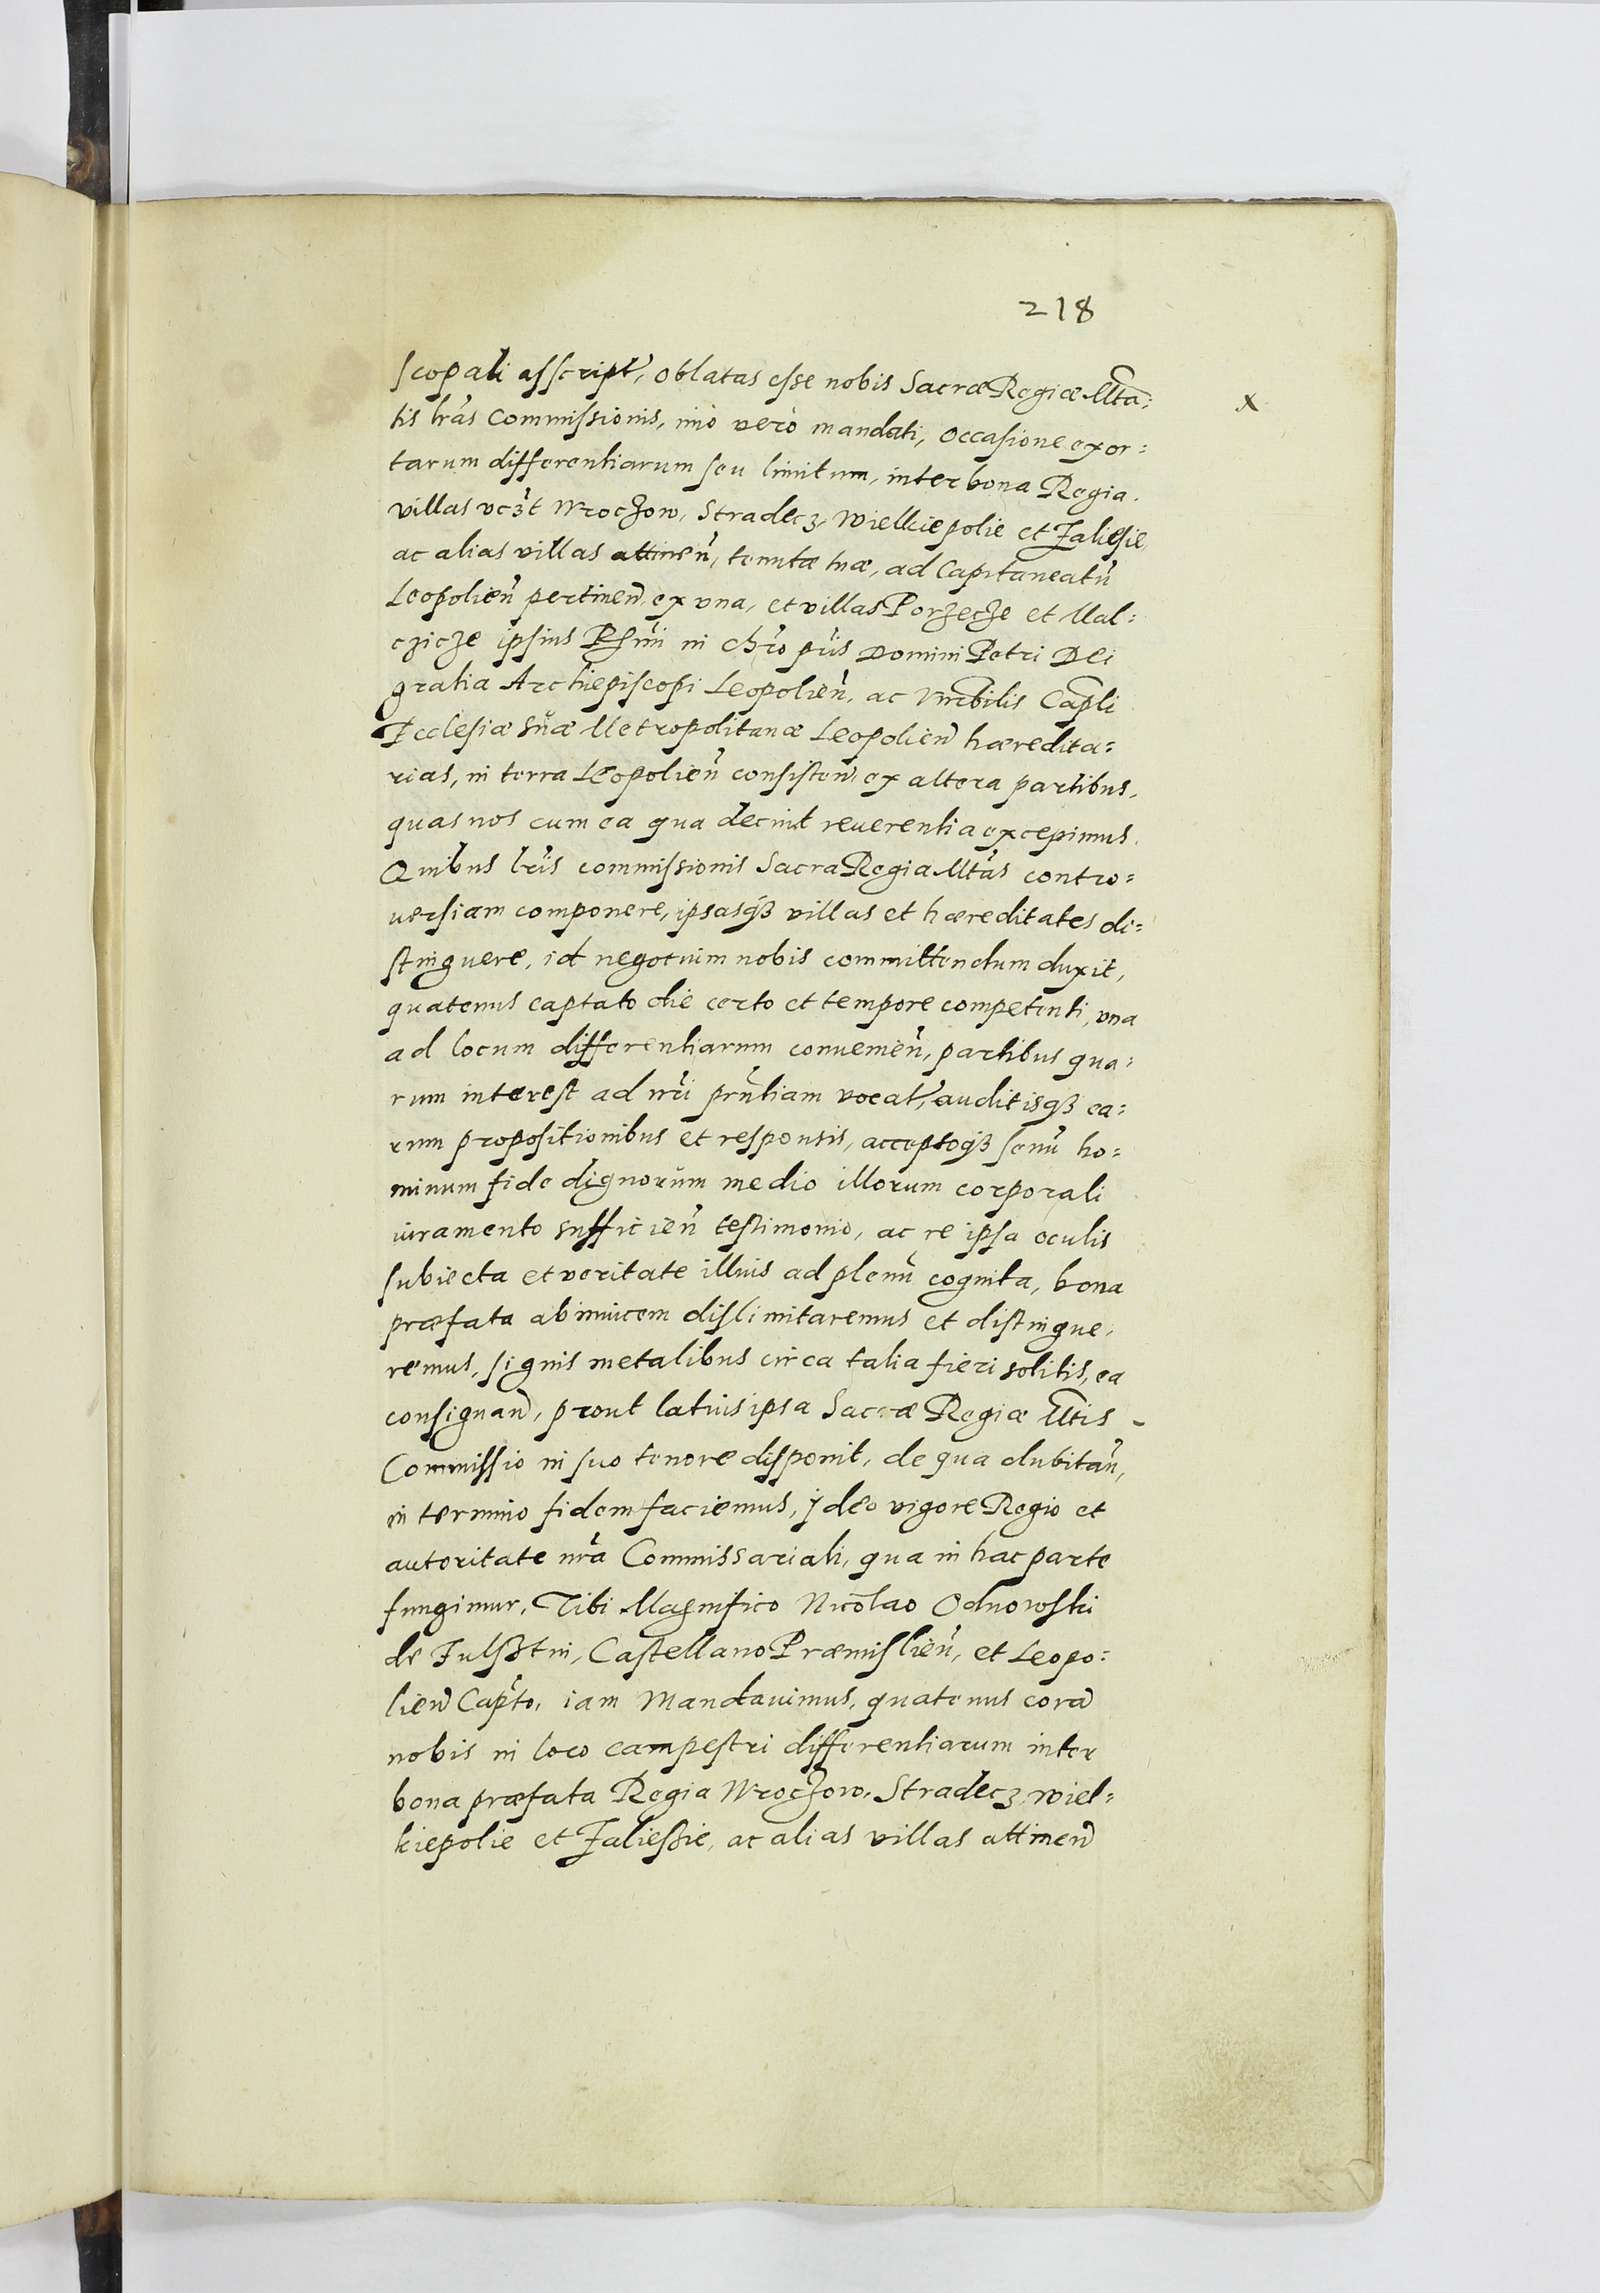 218
scopali asscript, oblatas esse nobis Sacræ Regiæ Mta:
tis lrãs Commissionis, imò verò mandati, occasione exor:
tarum differentiarum seu limitum, inter bona Regia
villas vczt Wroczow, Stradecz, Wielkiepolie et Zaliesie
ac alias villas attineñ, tenutæ tuæ, ad Capitaneatũ
Leopolieñ pertineñ ex vna, et villas Porzecze et Mal:
czicze ipsius Rssmi in Chro pris Domini Petri Dei
gratia Archiepiscopi Leopolieñ, ac Vnrabilis Capli
Ecclesiæ suæ Metropolitanæ Leopolieñ hæredita:
rias, in terra Leopolieñ consisteñ ex altera partibus,
quas nos cum ea qua decuit reuerentia excepimus.
Quibus lris commissionis Sacra Regia Mtas contro:
uersiam componere, ipsasq3 villas et hæreditates di:
stinguere, id negotium nobis committendum duxit,
quatenus captato die certo et tempore competenti, vna
ad locum differentiarum conuenieñ, partibus qua:
rum interest ad nri prñtiam vocat, auditisq3 ea:
rum propositionibus et responsis, acceptoq3 senũ ho:
minum fide dignorum medio illorum corporali
iuramento sufficieñ testimonio, ac re ipsa oculis
subiecta et veritate illius ad plenũ cognita, bona
præfata abinuicem dislimitaremus et distingue:
remus, signis metalibus circa talia fieri solitis, ea
consignand, prout latius ipsa Sacræ Regiæ Mtis
Commissio in suo tenore disponit, de qua dubitañ,
in termino fidem faciemus, jdeo vigore Regio et
autoritate nra Commissariali, qua in hac parte
fungimur, Tibi Magnifico Nicolao Odnowski
de Fulsztin, Castellano Præmislieñ, et Leopo:
lieñ Capto, iam Mandauimus, quatenus corã
nobis in loco campestri differentiarum inter
bona præfata Regia Wroczow, Stradecz, Wiel:
kiepolie et Zaliessie, ac alias villas attineñ